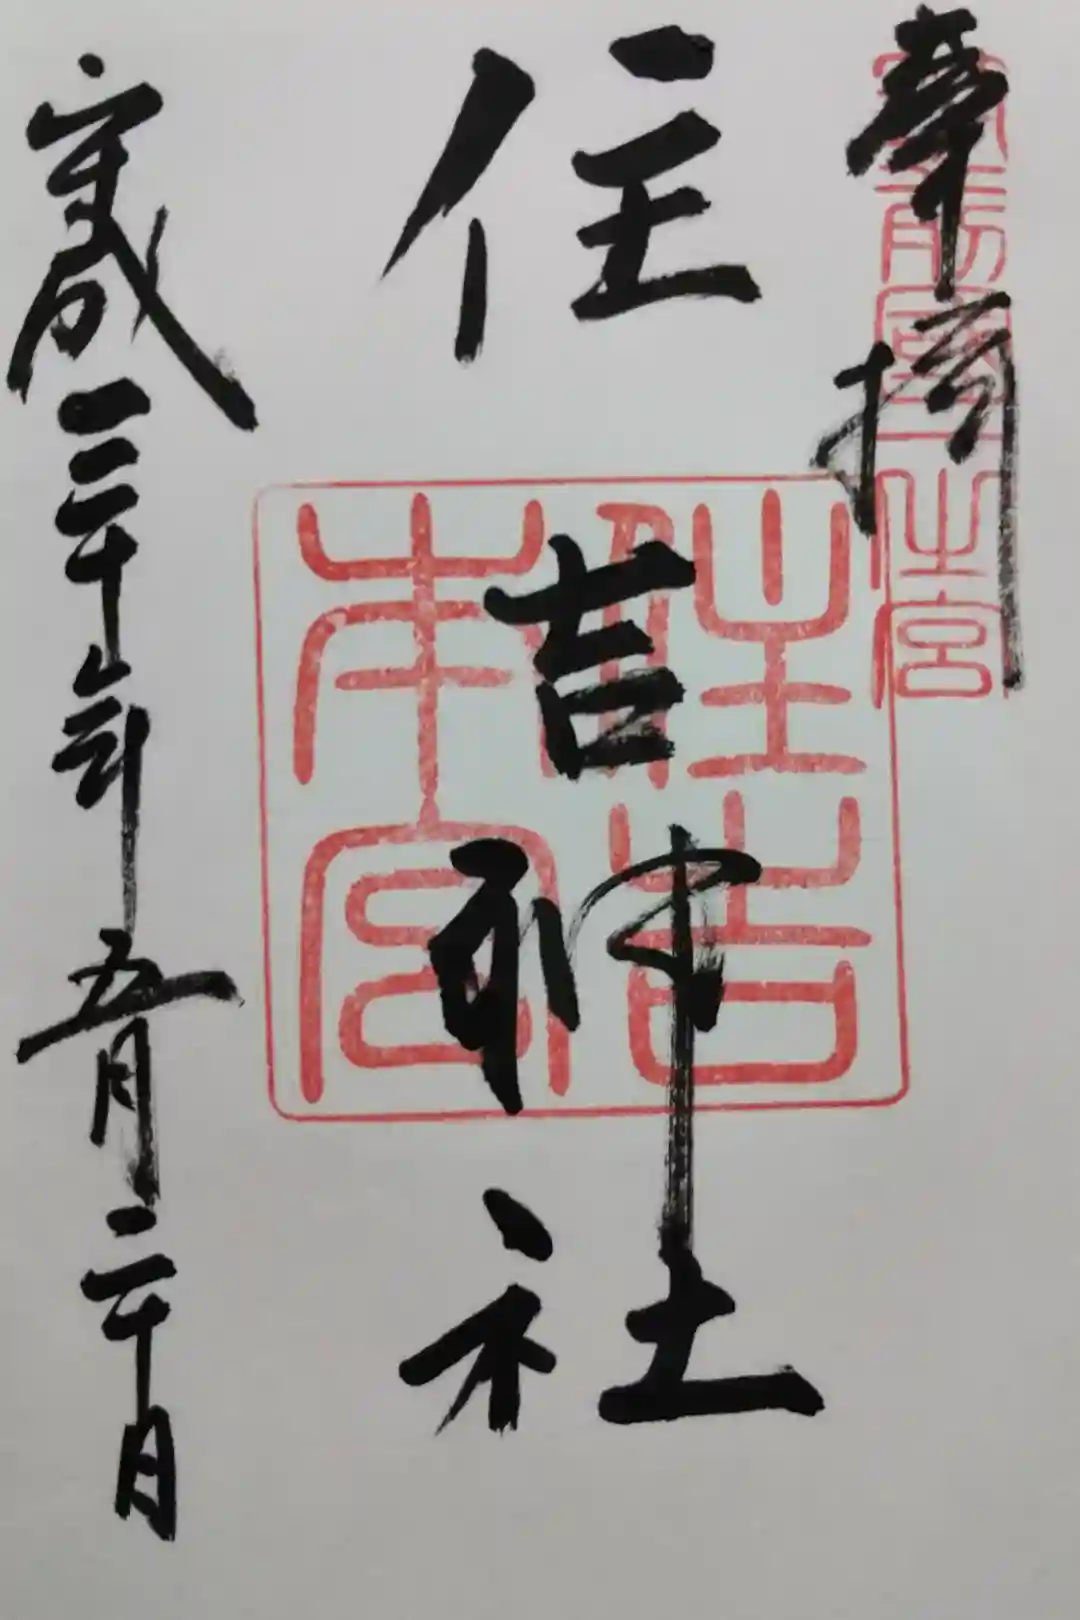 奉拝
筑前國一之宮
住吉神社
住吉本宮
平成三十年五月二十日